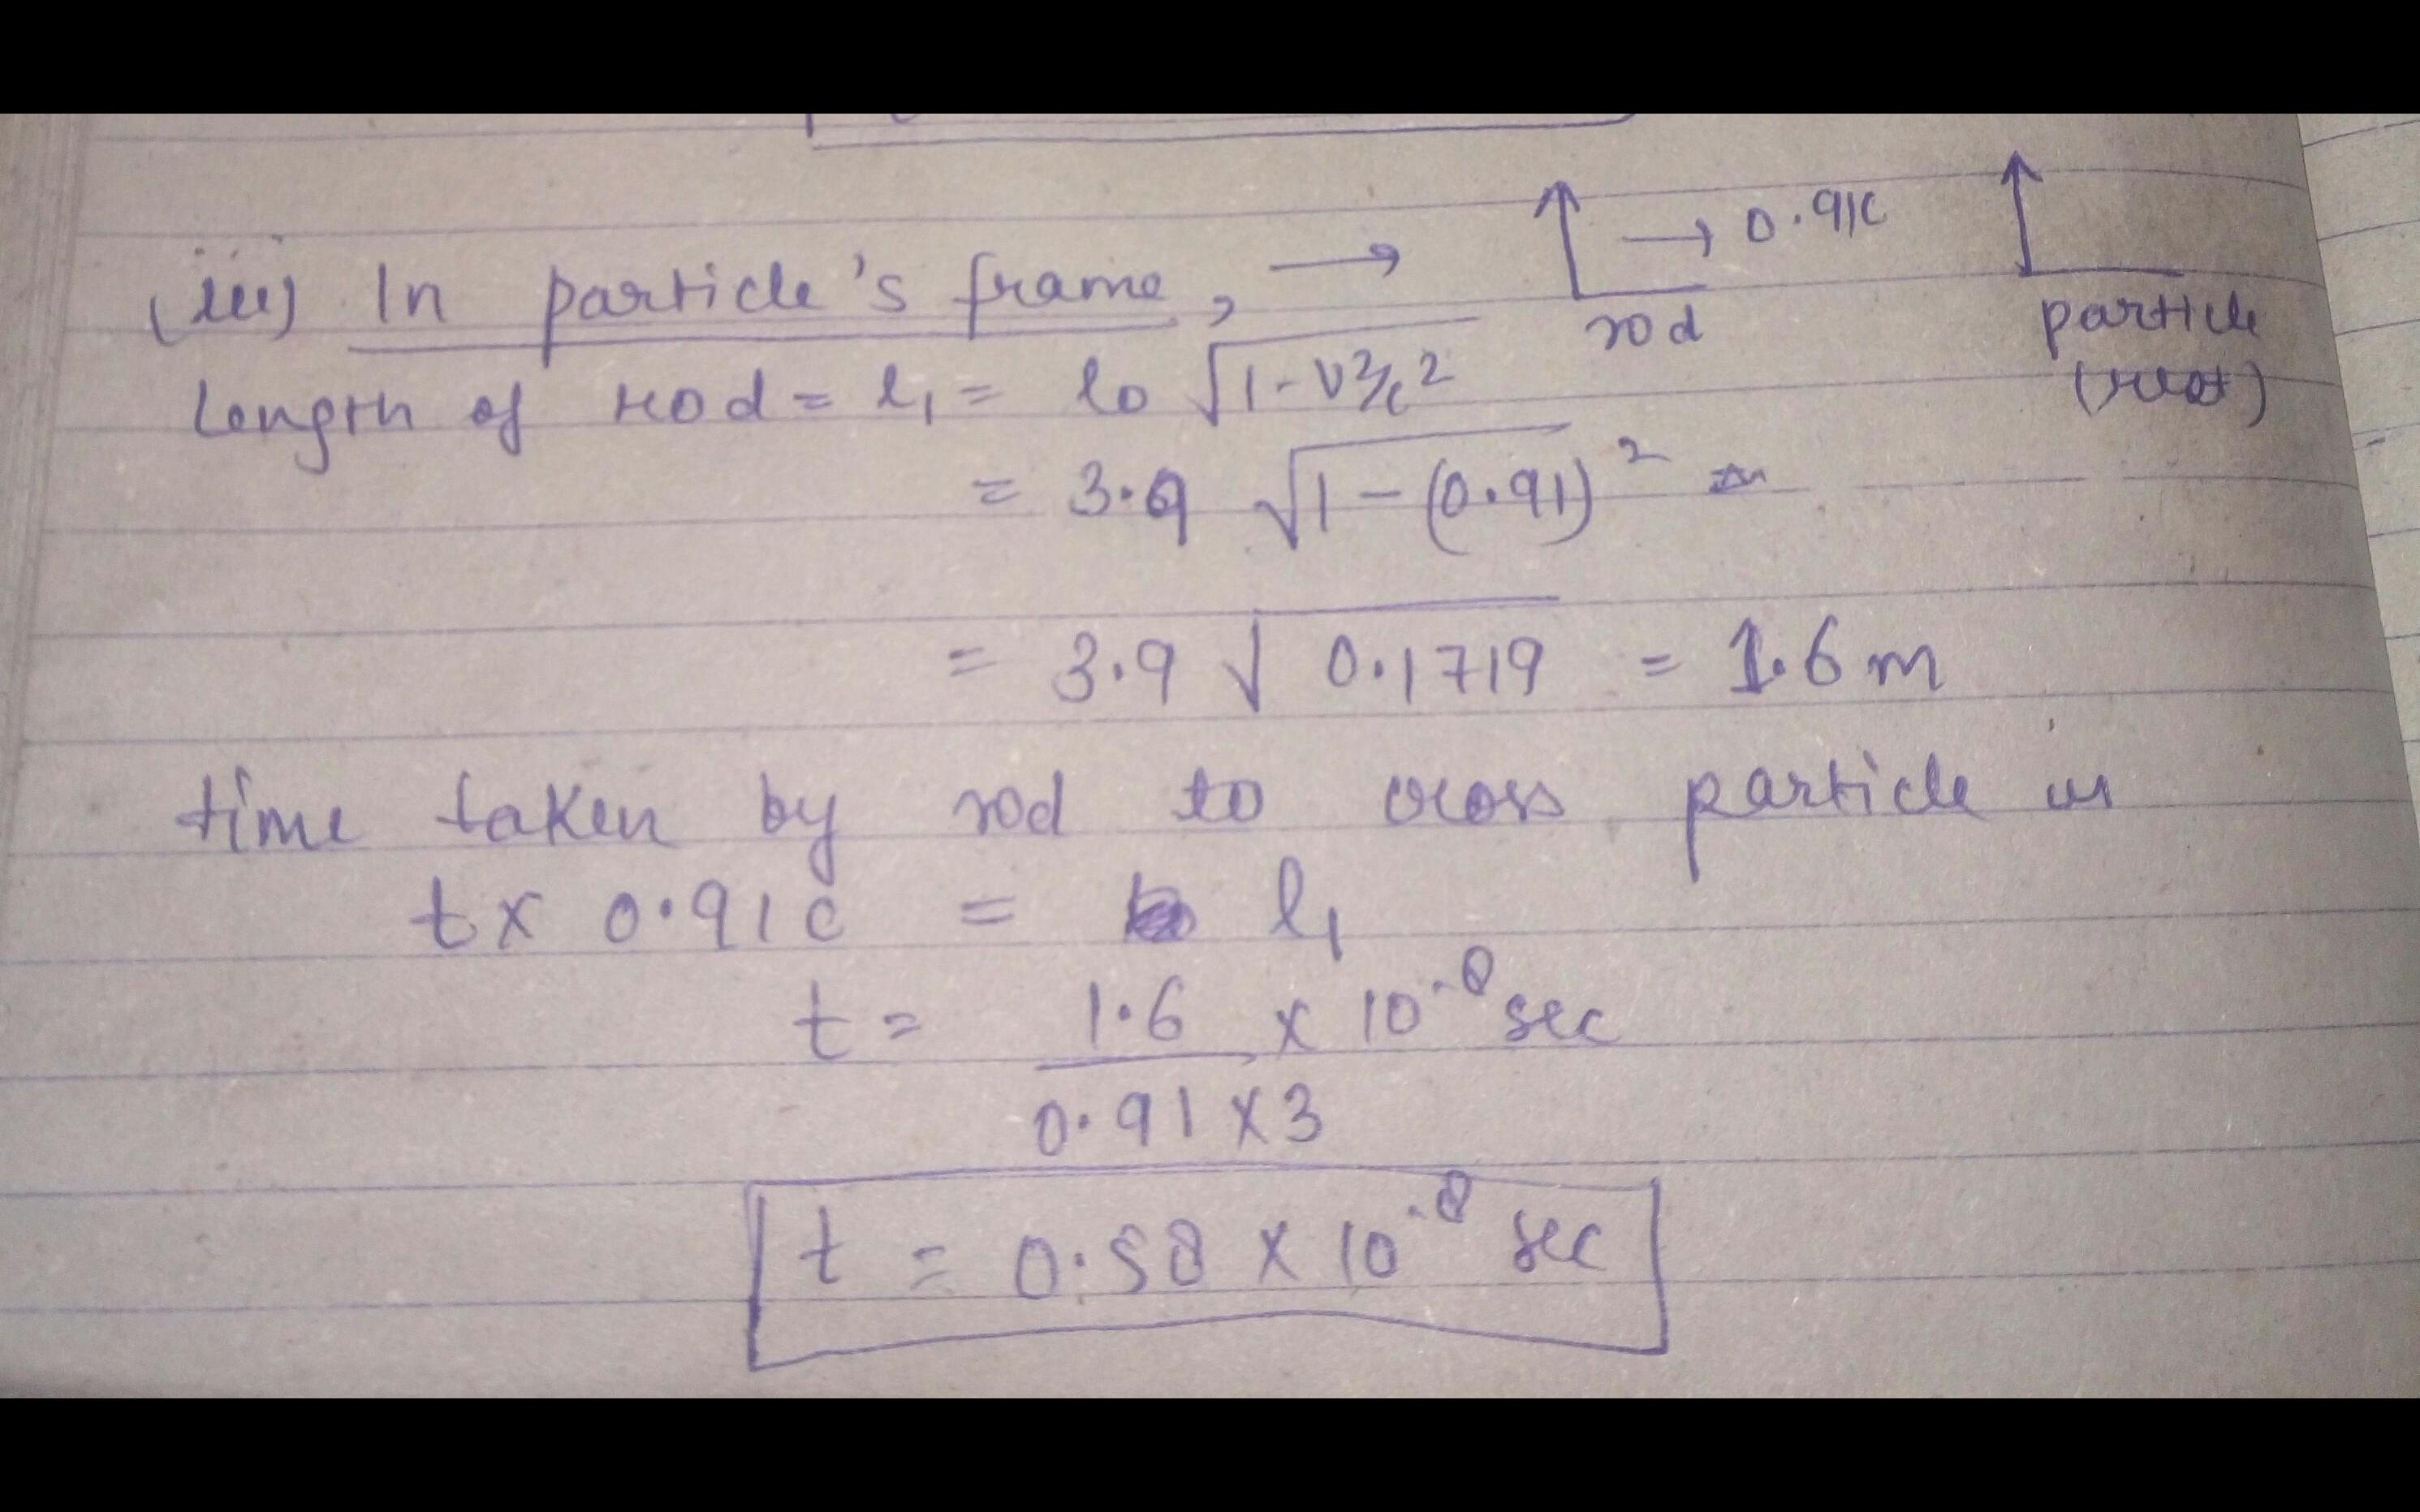 → 0.91c
(iii) In particle's frame, →
rod
particle
(rest)
length of rod = l₁ = l₀ √1-v²/c²
= 3.9 √1-(0.91)²
= 3.9 √0.1719 = 1.6 m
time taken by rod to cross particle is
t x 0.91c = l₁
t = 1.6 x 10⁻⁸ sec
0.91 x 3
t = 0.58 x 10⁻⁸ sec